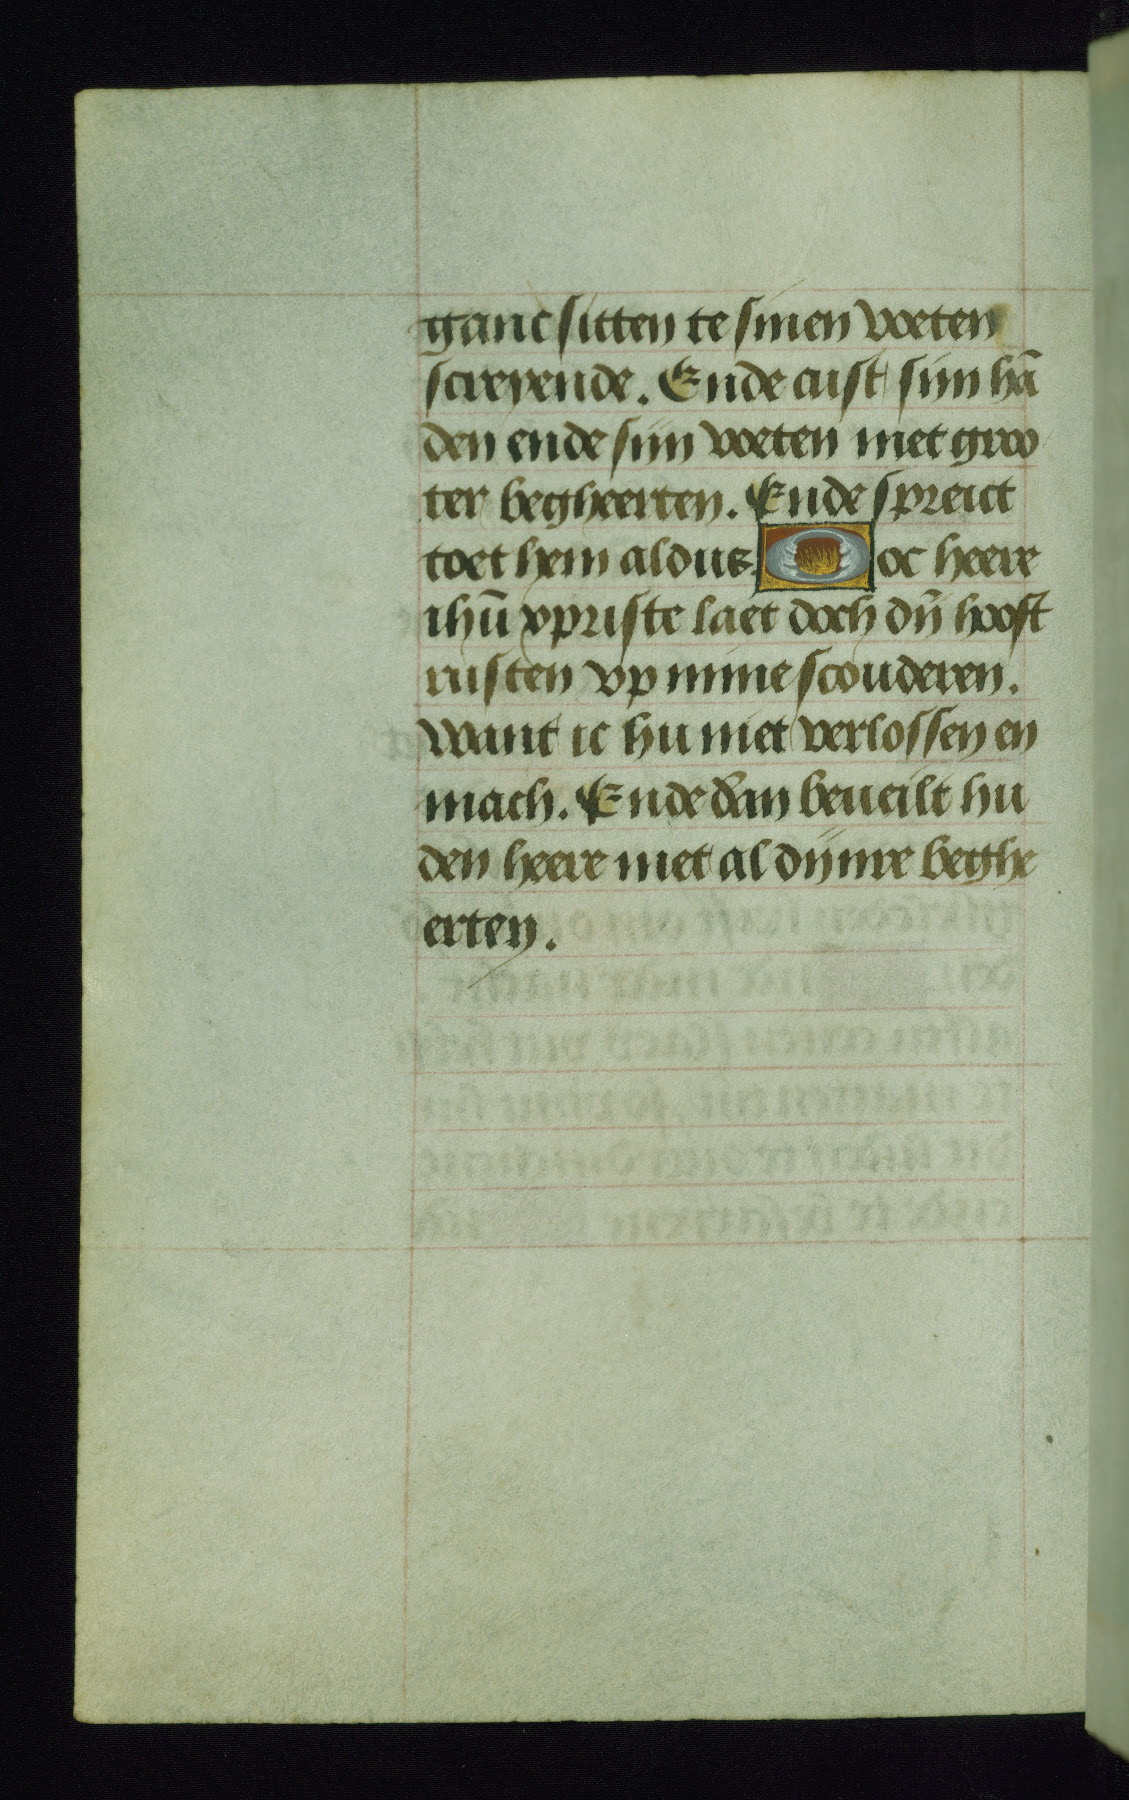 ganc sitten te sinen voeten
screyende. Ende cust sijn hā
den ende sijn voeten met groo
ter begheerten. Ende spreict
toet hem aldus. Ooc heere
ihū xpriste laet doch dȳ hooft
rusten vp mine scouderen.
Want ic hu niet verlossen en
mach. Ende dan beueilt hu
den heere met al dijnre beghe
erten.